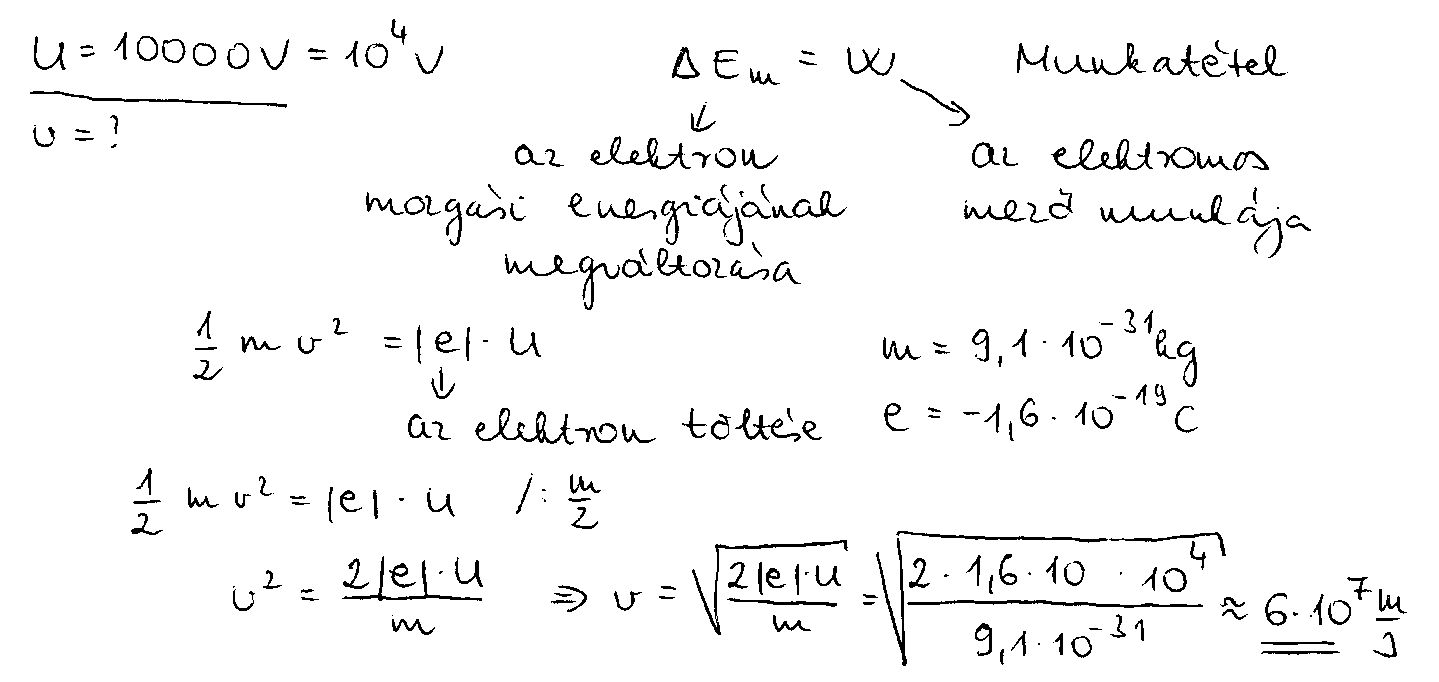 U = 10000V = 10⁴ V
v = ?
ΔEₘ = W Munkatétel
az elektron mozgási energiájának megváltozása
az elektromos mező munkája
½ m v² = |e| · U
az elektron töltése
m = 9,1 · 10⁻³¹ kg
e = -1,6 · 10⁻¹⁹ C
½ m v² = |e| · U /: m/2
v² = 2|e|·U / m ⇒ v = √(2|e|·U / m) = √(2 · 1,6 · 10 · 10⁴ / 9,1 · 10⁻³¹) ≈ 6 · 10⁷ m/s